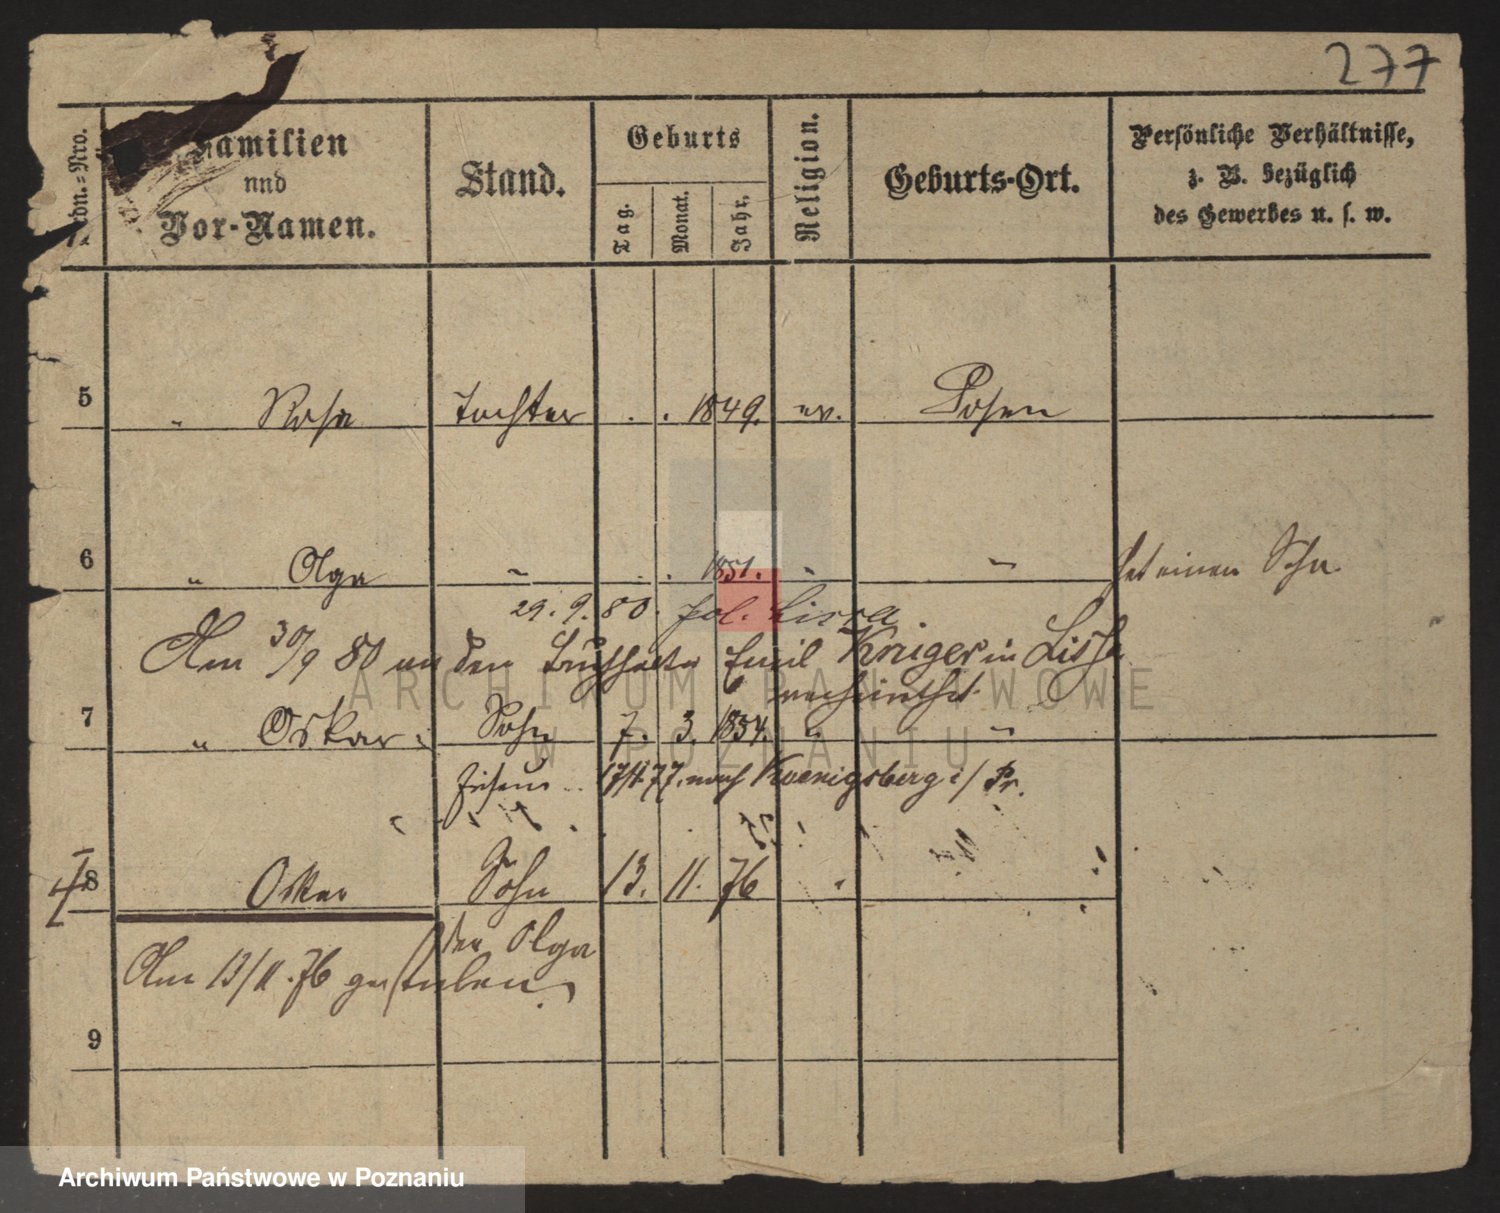 277
Ordn.-Nro.
Familien
und
Vor-Namen.
Stand.
Geburts
Tag.
Monat.
Jahr.
Religion.
Geburts-Ort.
Persönliche Verhältnisse,
z. B. bezüglich
des Gewerbes u. s. w.
5 " Rosa Tochter . . 1849. ev. Posen
6 " Olga " . . 1851. " " hat einen Sohn
29. 9. 80. pol. Lissa
Am 30/9 80 an den Buchhalter Emil Krüger in Lissa
verheirathet.
7 " Oskar Sohn 7. 3. 1854. " "
Friseur 17/4 77. nach Koenigsberg i/ Pr.
8 Oskar Sohn 13. 11. 76 "
der Olga
Am 13/11. 76 gestorben.
9
ARCHIWUM PAŃSTWOWE
W POZNANIU
Archiwum Państwowe w Poznaniu